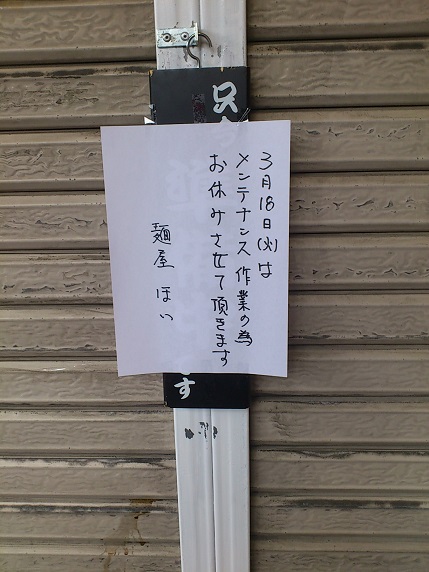 3月18日(火)は
メンテナンス作業の為
お休みさせて頂きます
麺屋 ほぃ
只
す